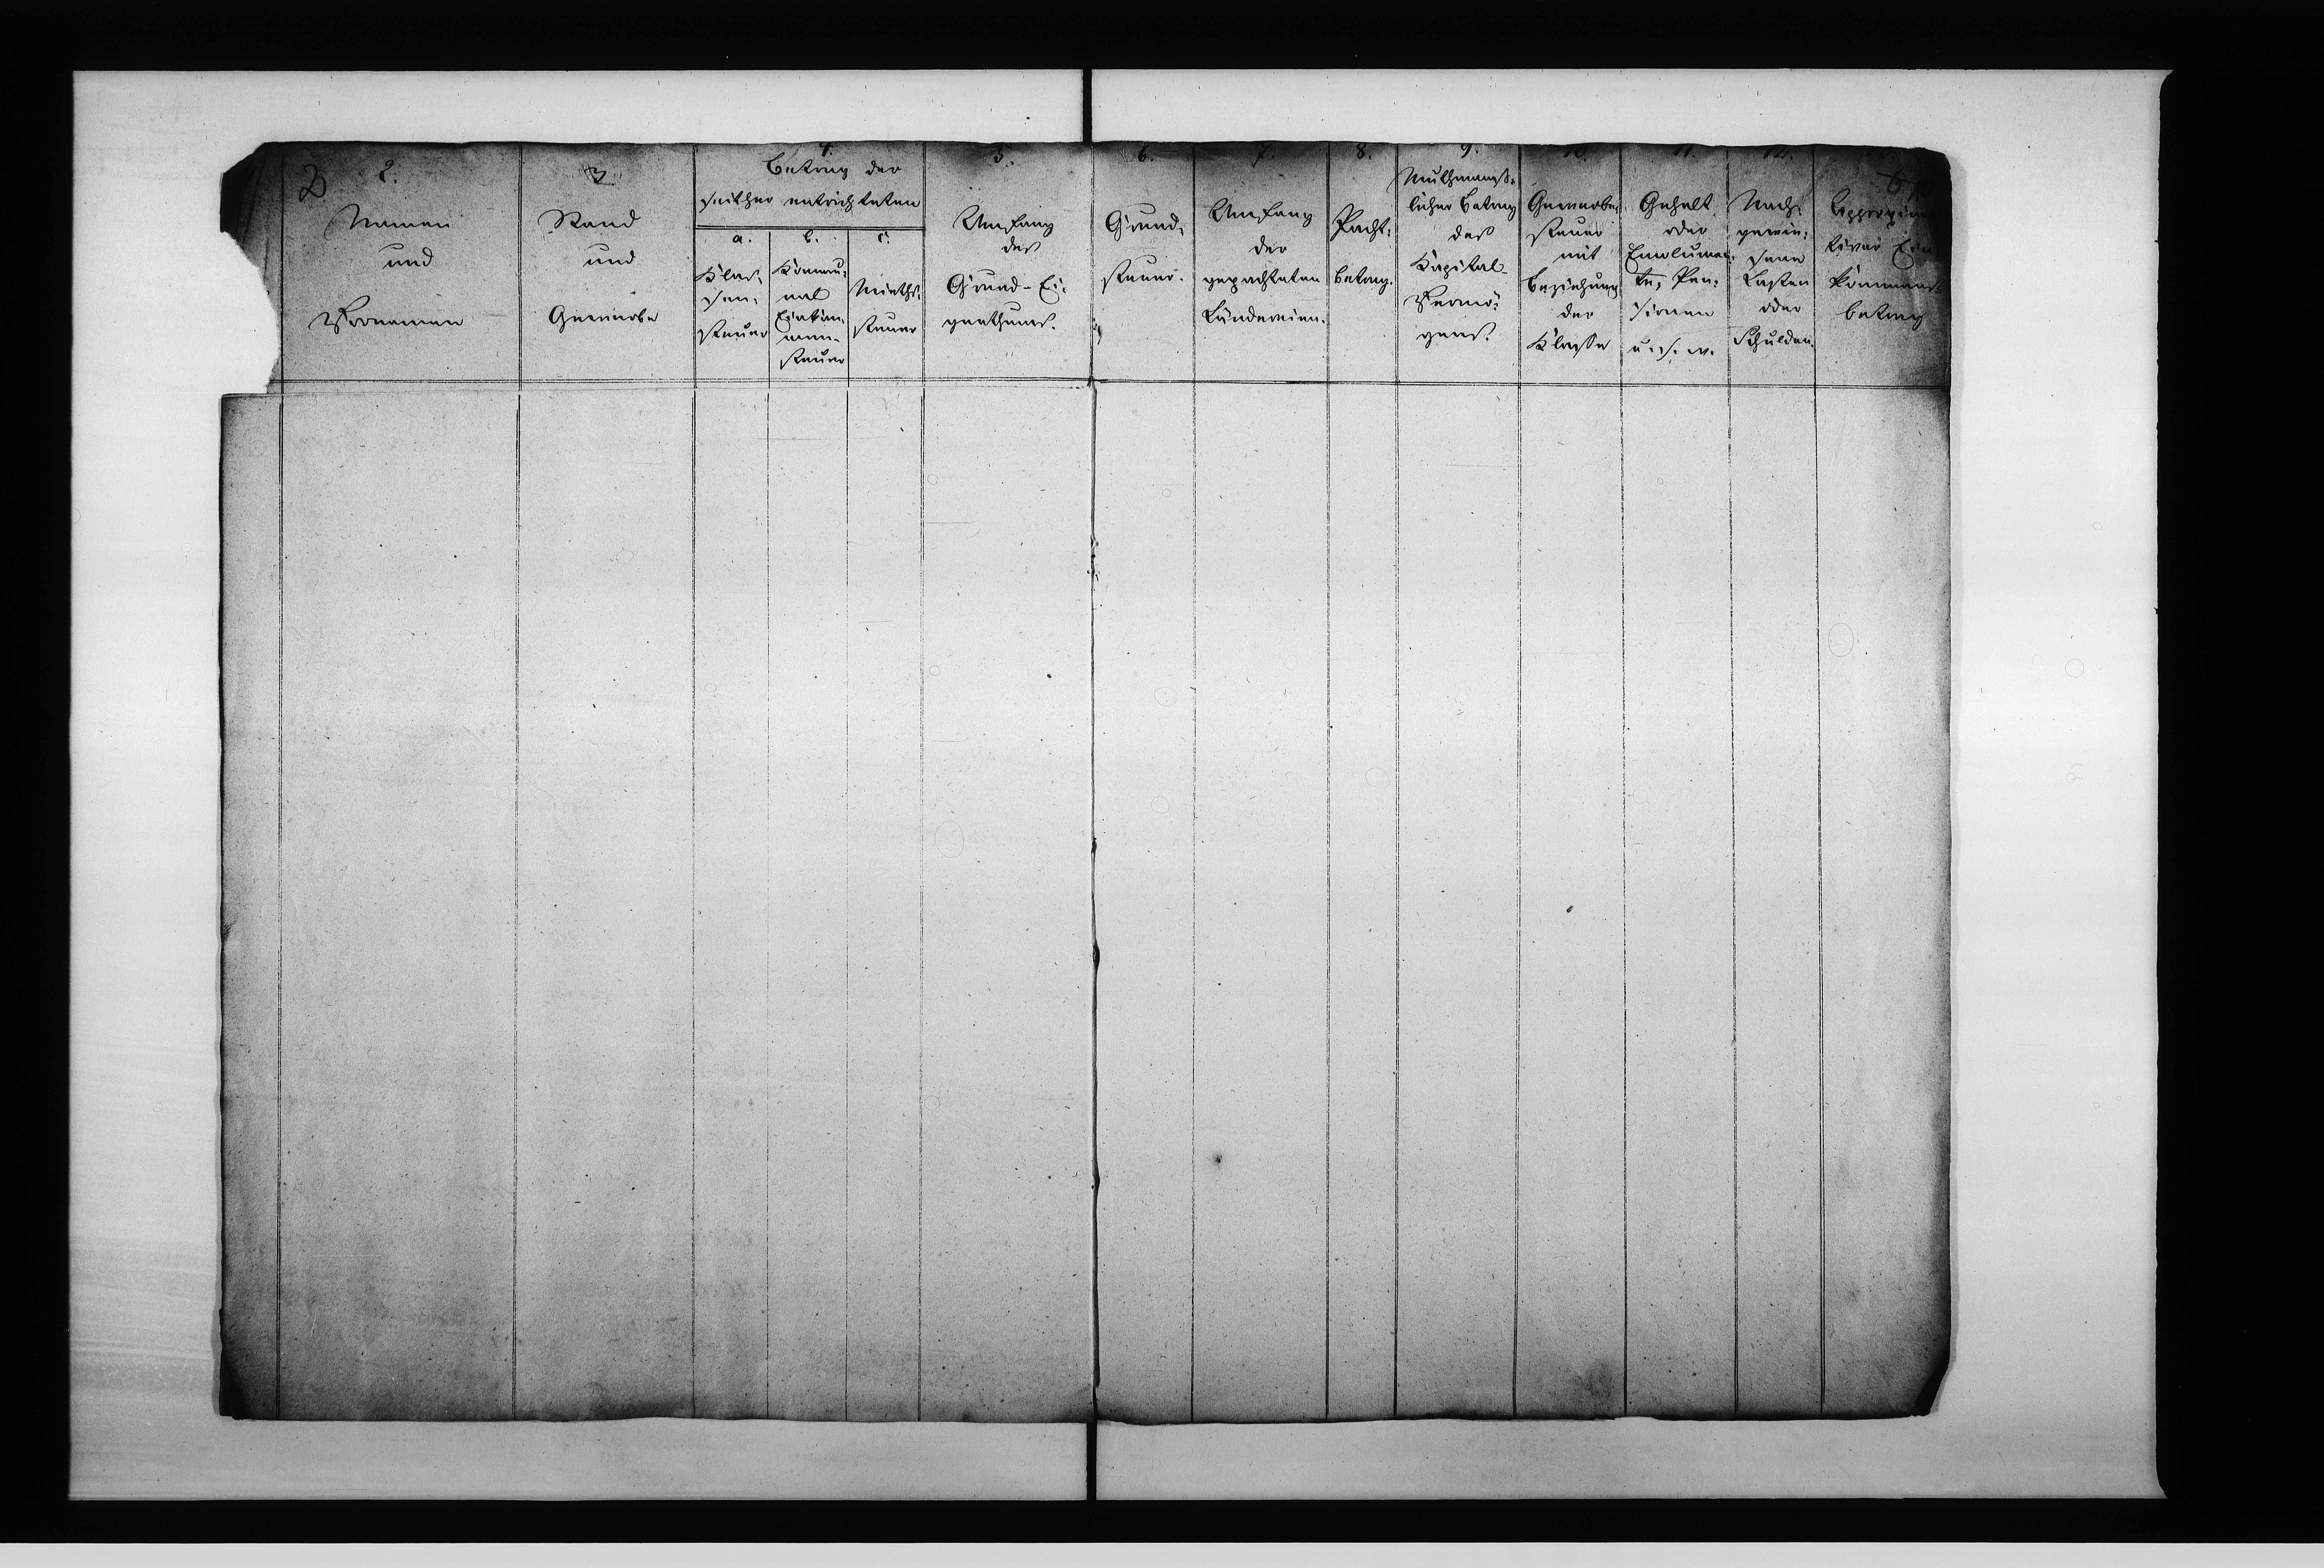 2.
Namen
und
Vornamen
3
Stand
und
Gewerbe
4.
Betrag der
seither entrichteten
a.
Klas-
sen-
steuer
b.
Kommu-
nal
Einkom-
men-
steuer
c.
Mieths-
steuer
5.
Umfang
des
Grund-Ei-
genthums.
6.
Grund-
steuer.
7.
Umfang
der
gepachteten
Ländereien.
8.
Pacht-
betrag.
9.
Muthmaß-
licher Betrag
des
Kapital-
Vermö-
gens.
10.
Gewerbe-
steuer
mit
Beziehung
der
Klasse
11.
Gehalt
oder
Emolumen-
te, Pen-
sionen
u. s. w.
12.
Nach-
gewie-
sene
Lasten
oder
Schulden.
Approxima
tiver Ein
kommens-
betrag